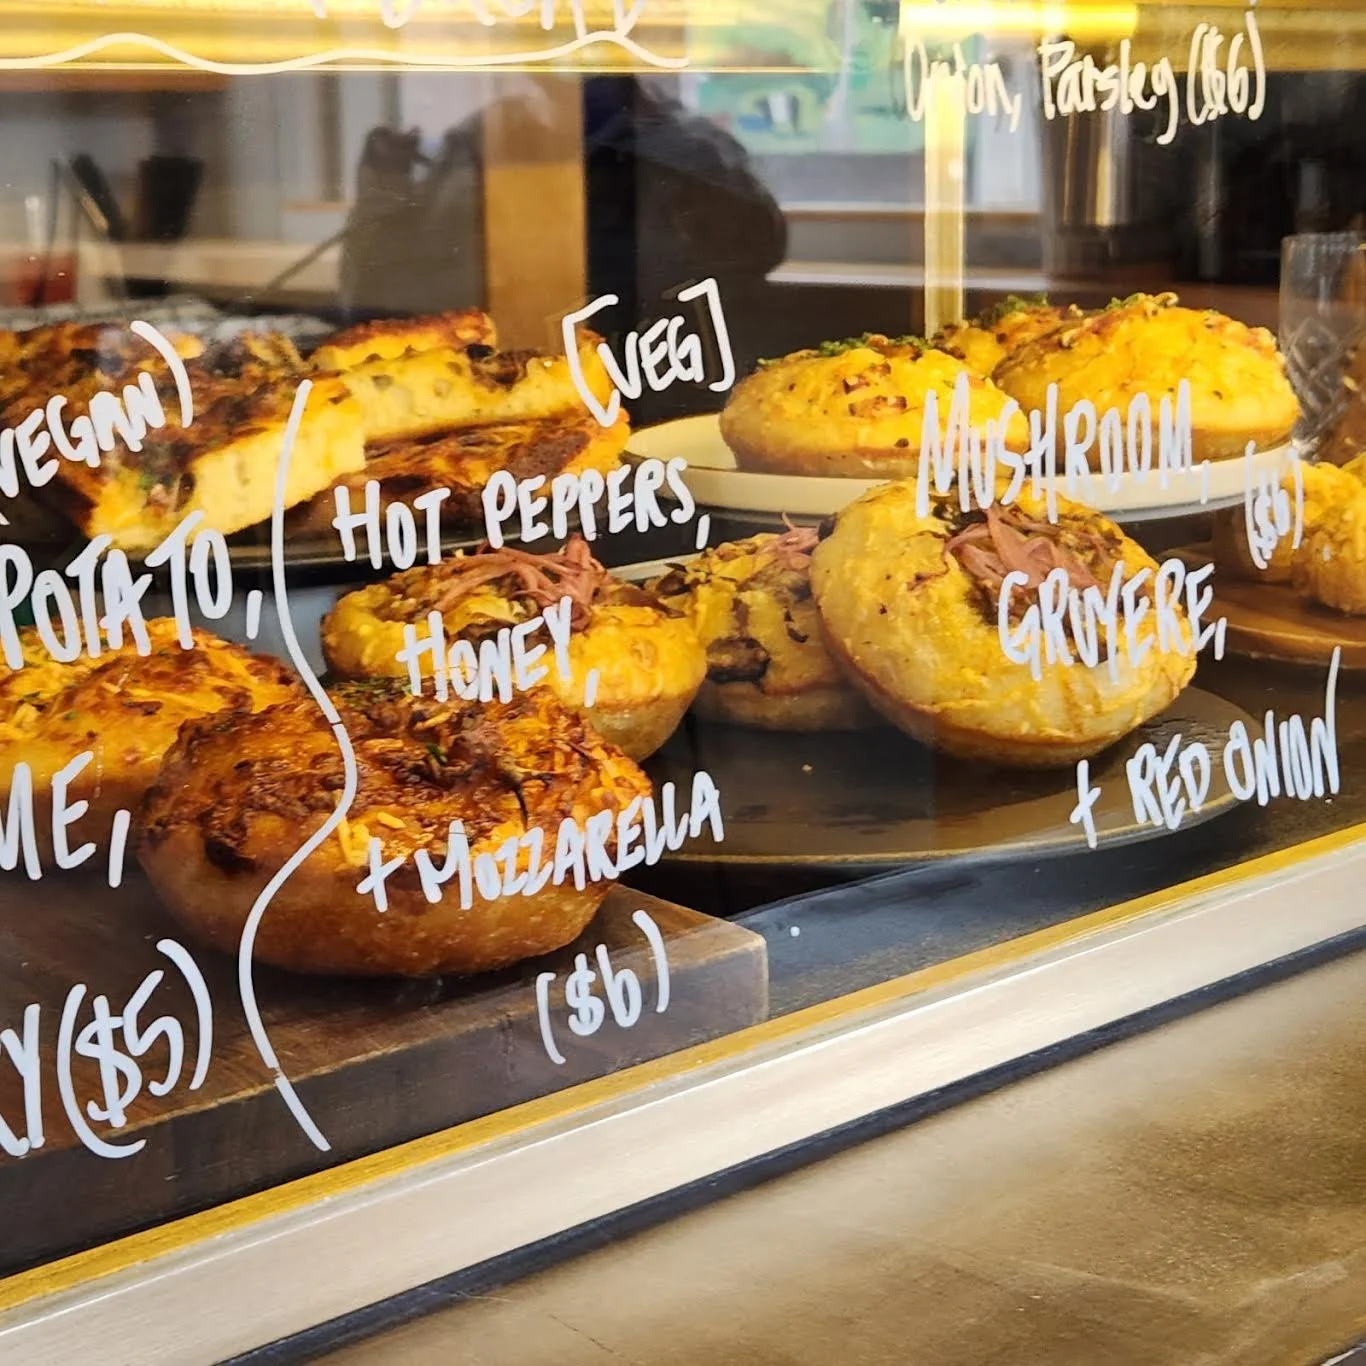 Onion, Parsley ($6)
VEGAN)
POTATO,
ME,
Y ($5)
[VEG]
HOT PEPPERS,
HONEY,
+ MOZZARELLA
($6)
MUSHROOM,
($6)
GRUYERE,
+ RED ONION